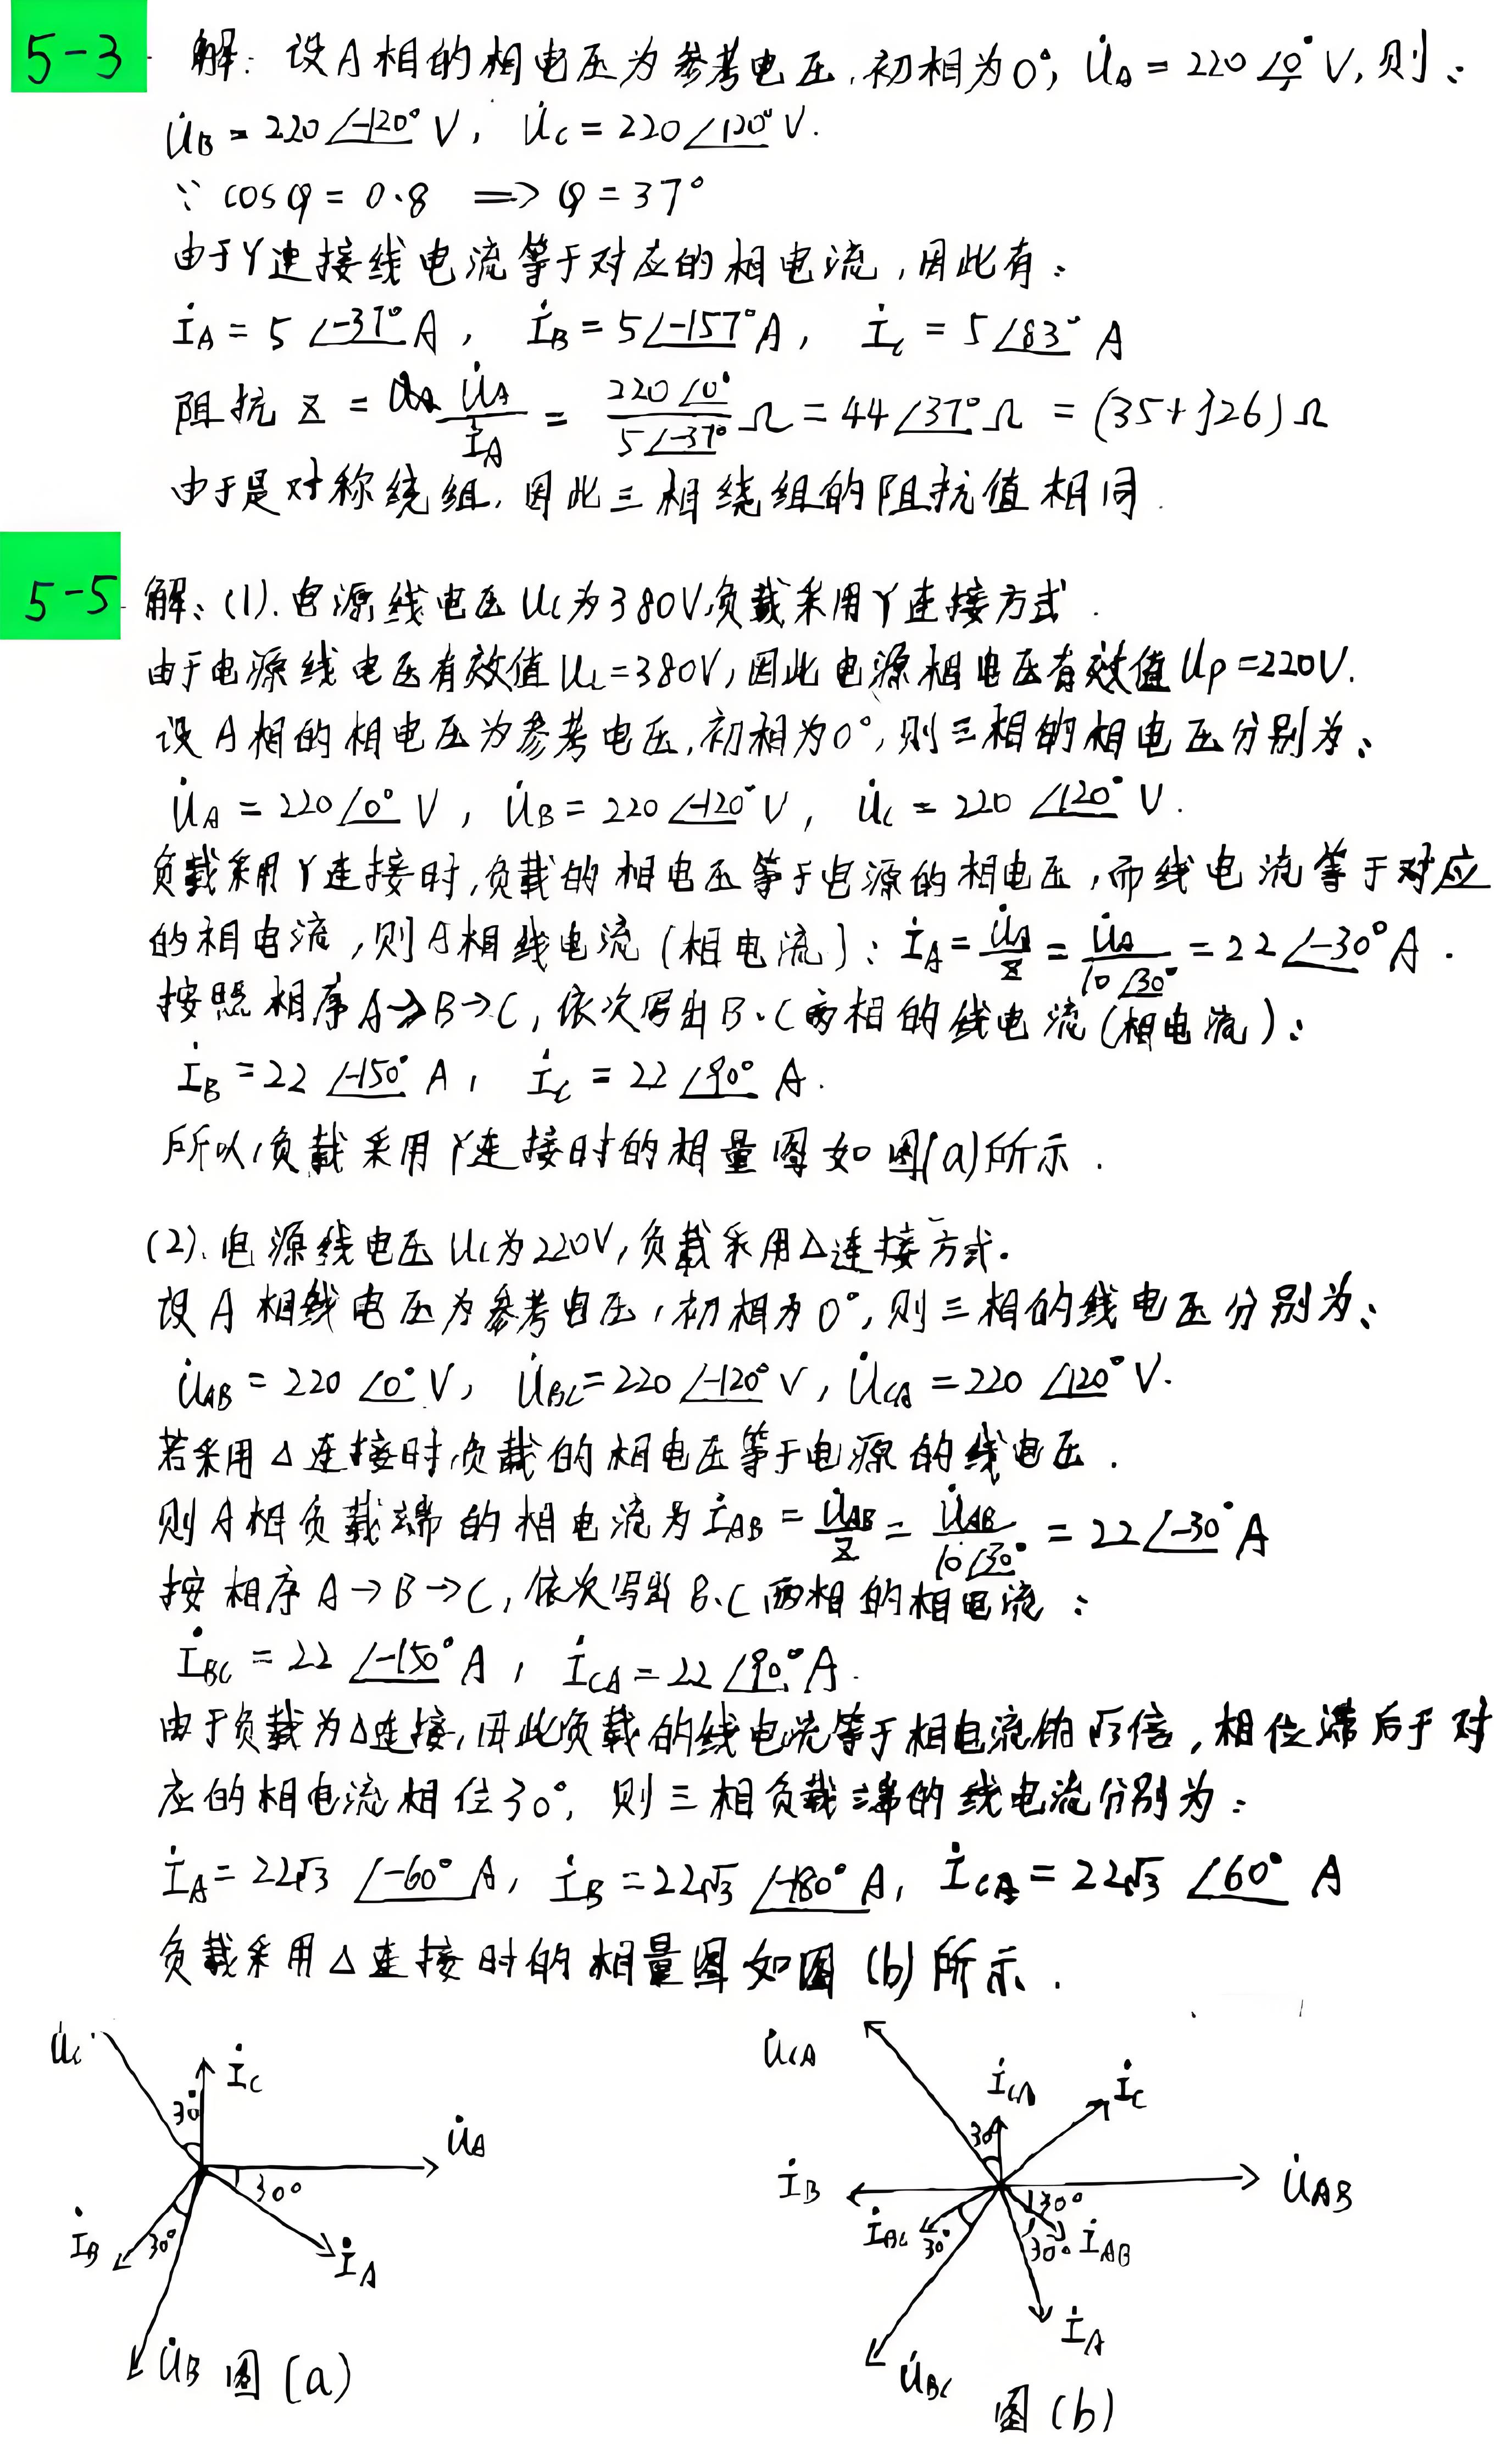 5-3 解: 设A相的相电压为参考电压,初相为0°, U̇A = 220∠0° V, 则:
U̇B = 220∠-120° V, U̇C = 220∠120° V.
∵ cosφ = 0.8 ⟹ φ = 37°
由于Y连接线电流等于对应的相电流,因此有:
İA = 5∠-37° A, İB = 5∠-157° A, İC = 5∠83° A
阻抗 Z = U̇A/İA = 220∠0°/5∠-37° Ω = 44∠37° Ω = (35+j26) Ω
由于是对称绕组,因此三相绕组的阻抗值相同.
5-5 解: (1). 电源线电压UL为380V,负载采用Y连接方式.
由于电源线电压有效值UL=380V,因此电源相电压有效值UP=220V.
设A相的相电压为参考电压,初相为0°,则三相的相电压分别为:
U̇A = 220∠0° V, U̇B = 220∠-120° V, U̇C = 220∠120° V.
负载采用Y连接时,负载的相电压等于电源的相电压,而线电流等于对应
的相电流,则A相线电流(相电流): İA = U̇A/Z = U̇A/10∠30° = 22∠-30° A.
按照相序A→B→C,依次写出B、C两相的线电流(相电流):
İB = 22∠-150° A, İC = 22∠90° A.
所以,负载采用Y连接时的相量图如图(a)所示.
(2). 电源线电压UL为220V,负载采用Δ连接方式.
设A相线电压为参考电压,初相为0°,则三相的线电压分别为:
U̇AB = 220∠0° V, U̇BC = 220∠-120° V, U̇CA = 220∠120° V.
若采用Δ连接时,负载的相电压等于电源的线电压.
则A相负载端的相电流为İAB = U̇AB/Z = U̇AB/10∠30° = 22∠-30° A
按相序A→B→C,依次写出B、C两相的相电流:
İBC = 22∠-150° A, İCA = 22∠90° A.
由于负载为Δ连接,因此负载的线电流等于相电流的√3倍,相位滞后于对
应的相电流相位30°, 则三相负载端的线电流分别为:
İA = 22√3∠-60° A, İB = 22√3∠-180° A, İCA = 22√3∠60° A
负载采用Δ连接时的相量图如图(b)所示.
U̇C
İC
30°
U̇A
30°
İB
30°
İA
U̇B 图(a)
U̇CA
İCA
İC
30°
İB
U̇AB
İBC
30°
30°
30°
İAB
İA
U̇BC
图(b)